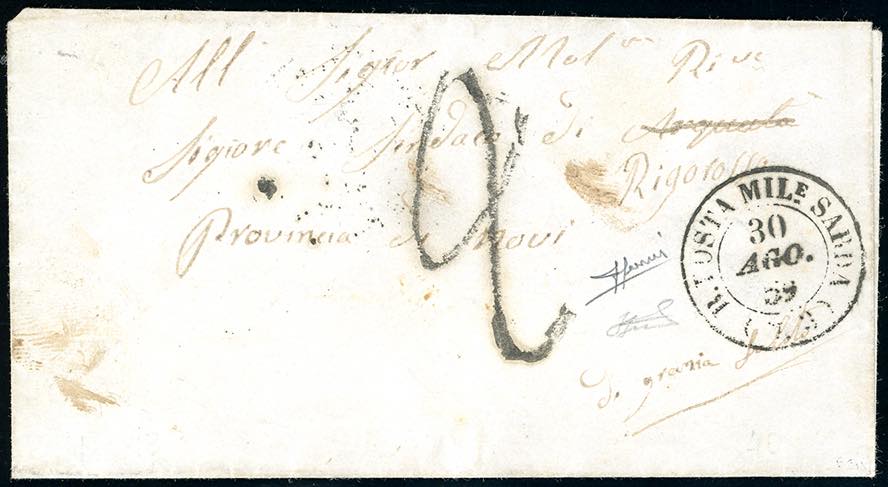 All Sigior Mol Rive
Sigiore Sindaco di Arquata
Rigorosso
Provincia di Novi
2
R. POSTA MILE SARDA
30
AGO.
59
Di gremia